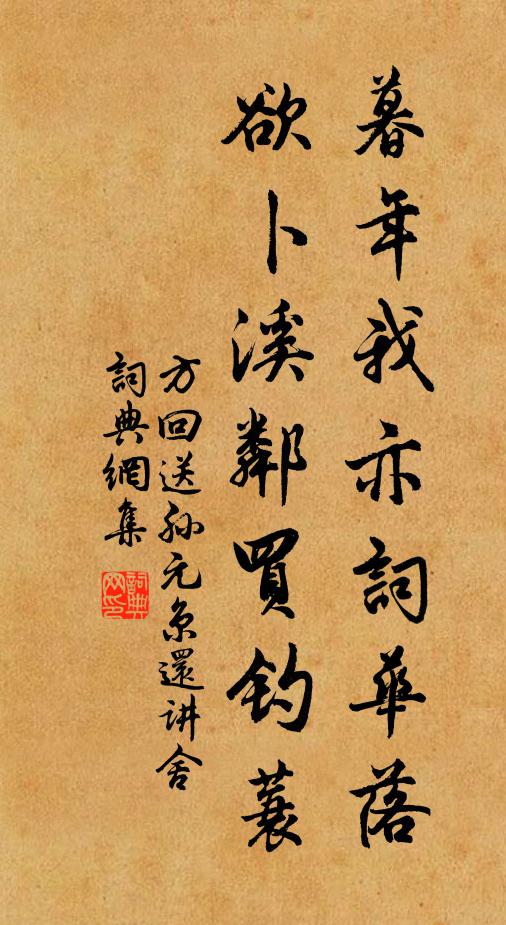 暮年我亦詞華落
欲卜溪鄰買釣蓑
方回送孙元京還讲舍
詞典網集
詞典网印